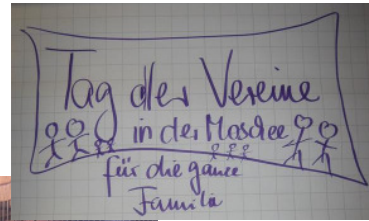 Tag der Vereine
in der Moschee
für die ganze
Familie